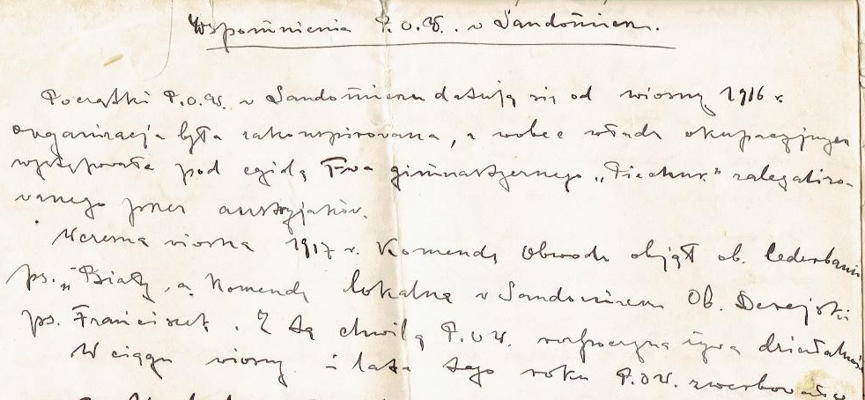 Wspomnienia P.O.W. w Sandomierzu.
Początki P.O.W. w Sandomierzu datują się od wiosny 1916 r.
Organizacja była zakonspirowana, a wobec władz okupacyjnych
występowała pod egidą T-wa gimnastycznego „Piechur" zalegalizo-
wanego przez austryjaków.
Wczesną wiosną 1917 r. Komendę Obwodu objął ob.
ps. „Biały, a Komendę lokalną w Sandomierzu Ob.
ps. Franciszek. Z tą chwilą P.O.W. rozpoczyna żywą działalność
W ciągu wiosny i lata tego roku P.O.W. zwerbowała